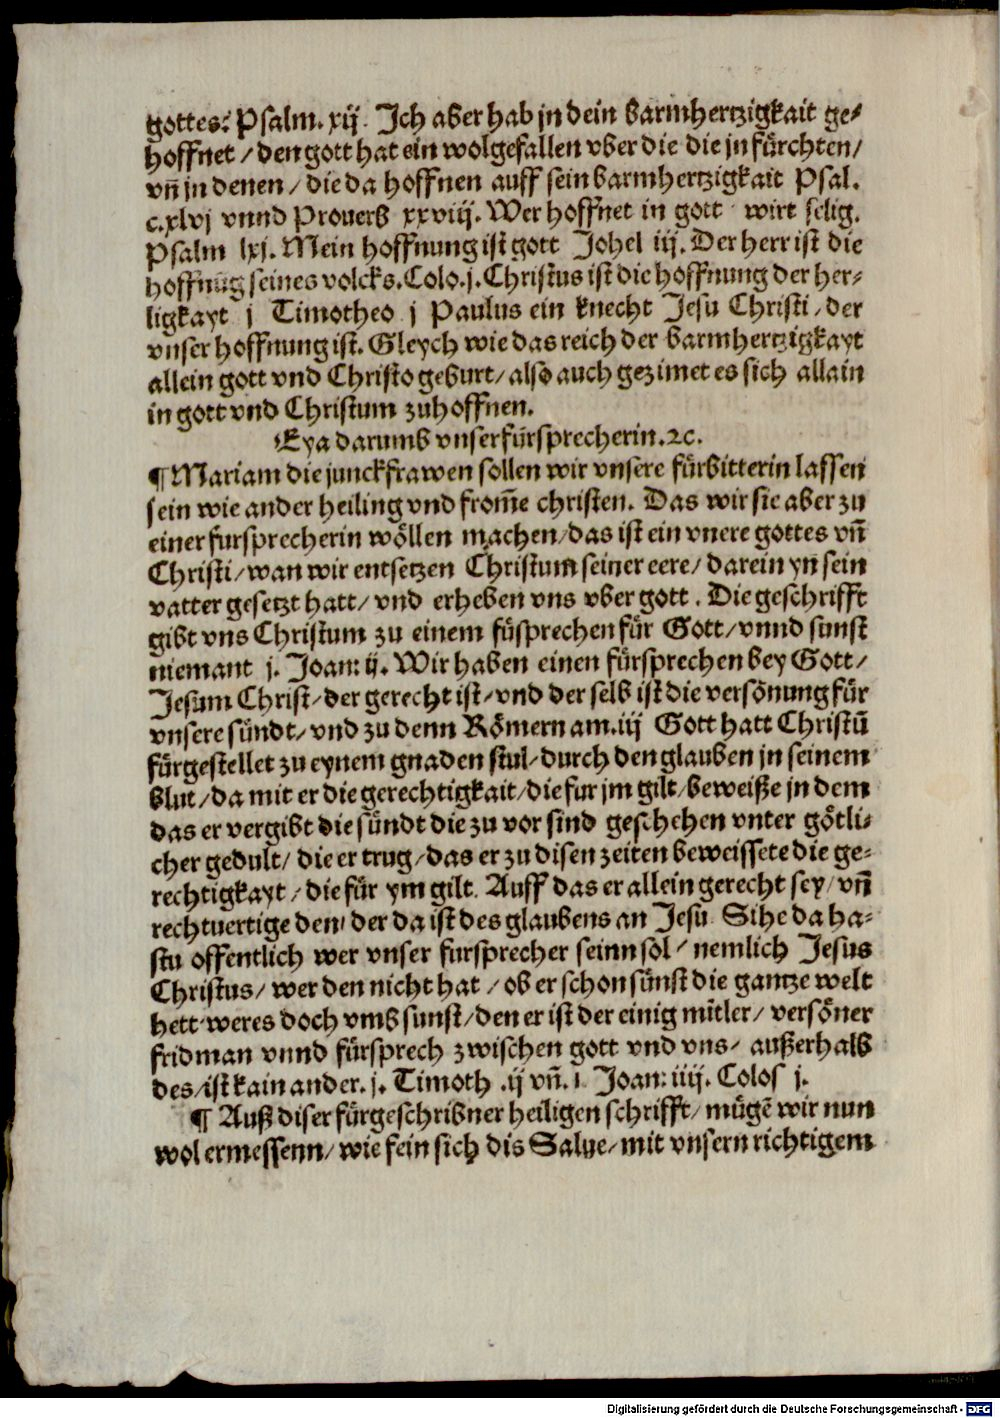 gottes: Psalm. xij. Ich aber hab jn dein barmhertzigkait ge-
hoffnet / den gott hat ein wolgefallen vber die die jn fürchten /
vñ jn denen / die da hoffnen auff sein barmhertzigkait Psal.
c.xlvj vnnd Prouerb xxviij. Wer hoffnet in gott wirt selig.
Psalm lxj. Mein hoffnung ist gott Johel iij. Der herr ist die
hoffnūg seines volcks. Colo. j. Christus ist die hoffnung der her-
ligkayt j Timotheo j Paulus ein knecht Jesu Christi / der
vnser hoffnung ist. Gleych wie das reich der barmhertzigkayt
allein gott vnd Christo geburt / also auch gezimet es sich allain
in gott vnd Christum zuhoffnen.
Eya darumb vnser fürsprecherin. ꝛc.
¶ Mariam die junckfrawen sollen wir vnsere fürbitterin lassen
sein wie ander heiling vnd from̄e christen. Das wir sie aber zu
einer fursprecherin wöllen machen / das ist ein vnere gottes vñ
Christi / wan wir entsetzen Christum seiner eere / darein yn sein
vatter gesetzt hatt / vnd erheben vns vber gott. Die geschrifft
gibt vns Christum zu einem füsprechen für Gott / vnnd sunst
niemant j. Joan: ij. Wir haben einen fürsprechen bey Gott /
Jesum Christ / der gerecht ist / vnd der selb ist die versönung für
vnsere sündt / vnd zu denn Römern am. iij Gott hatt Christū
fürgestellet zu eynem gnaden stul / durch den glauben jn seinem
blut / da mit er die gerechtigkait / die fur jm gilt / beweiße jn dem
das er vergibt die sündt die zu vor sind geschehen vnter götli-
cher gedult / die er trug / das er zu disen zeiten beweissete die ge-
rechtigkayt / die für ym gilt. Auff das er allein gerecht sey / vñ
rechtuertige den / der da ist des glaubens an Jesu. Sihe da ha-
stu offentlich wer vnser fursprecher seinn sol / nemlich Jesus
Christus / wer den nicht hat / ob er schon sünst die gantze welt
hett weres doch vmb sunst / den er ist der einig mitler / versöner
fridman vnnd fürsprech zwischen gott vnd vns / außerhalb
des / ist kain ander. j. Timoth .ij vñ. 1. Joan: iiij. Colos j.
¶ Auß diser fürgeschribner heiligen schrifft / mügē wir nun
wol ermessenn / wie fein sich dis Salue / mit vnsern richtigem
Digitalisierung gefördert durch die Deutsche Forschungsgemeinschaft - DFG